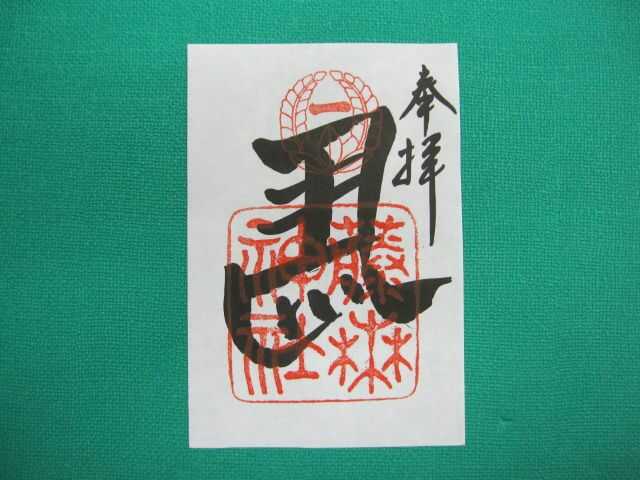 奉拝
一
藤森
神社